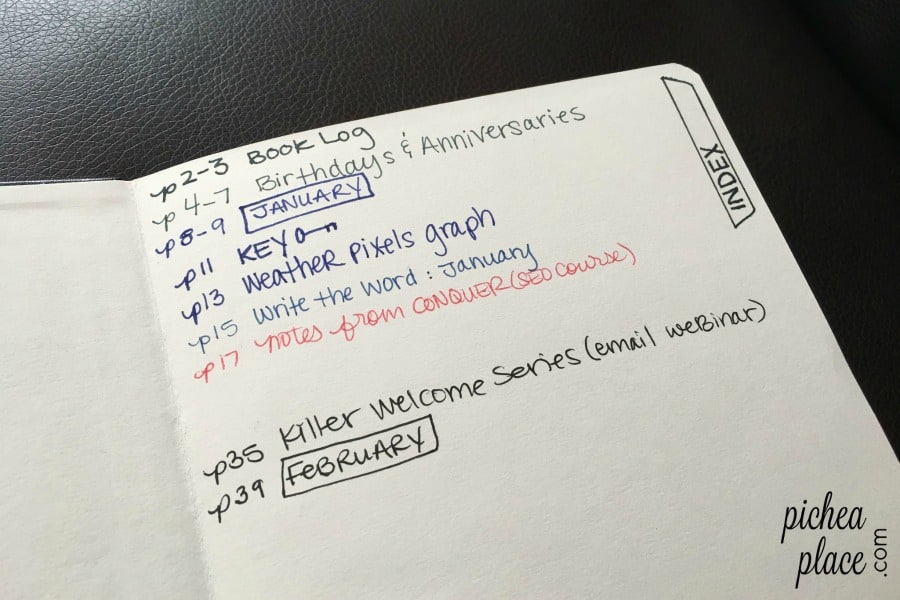 p2-3 BOOK LOG
p4-7 Birthdays & Anniversaries
p8-9 JANUARY
p11 KEY
p13 Weather Pixels graph
p15 Write the Word: January
p17 notes from CONQUER (SEO course)
p35 Killer Welcome Series (email webinar)
p39 FEBRUARY
INDEX
pichea
place.com